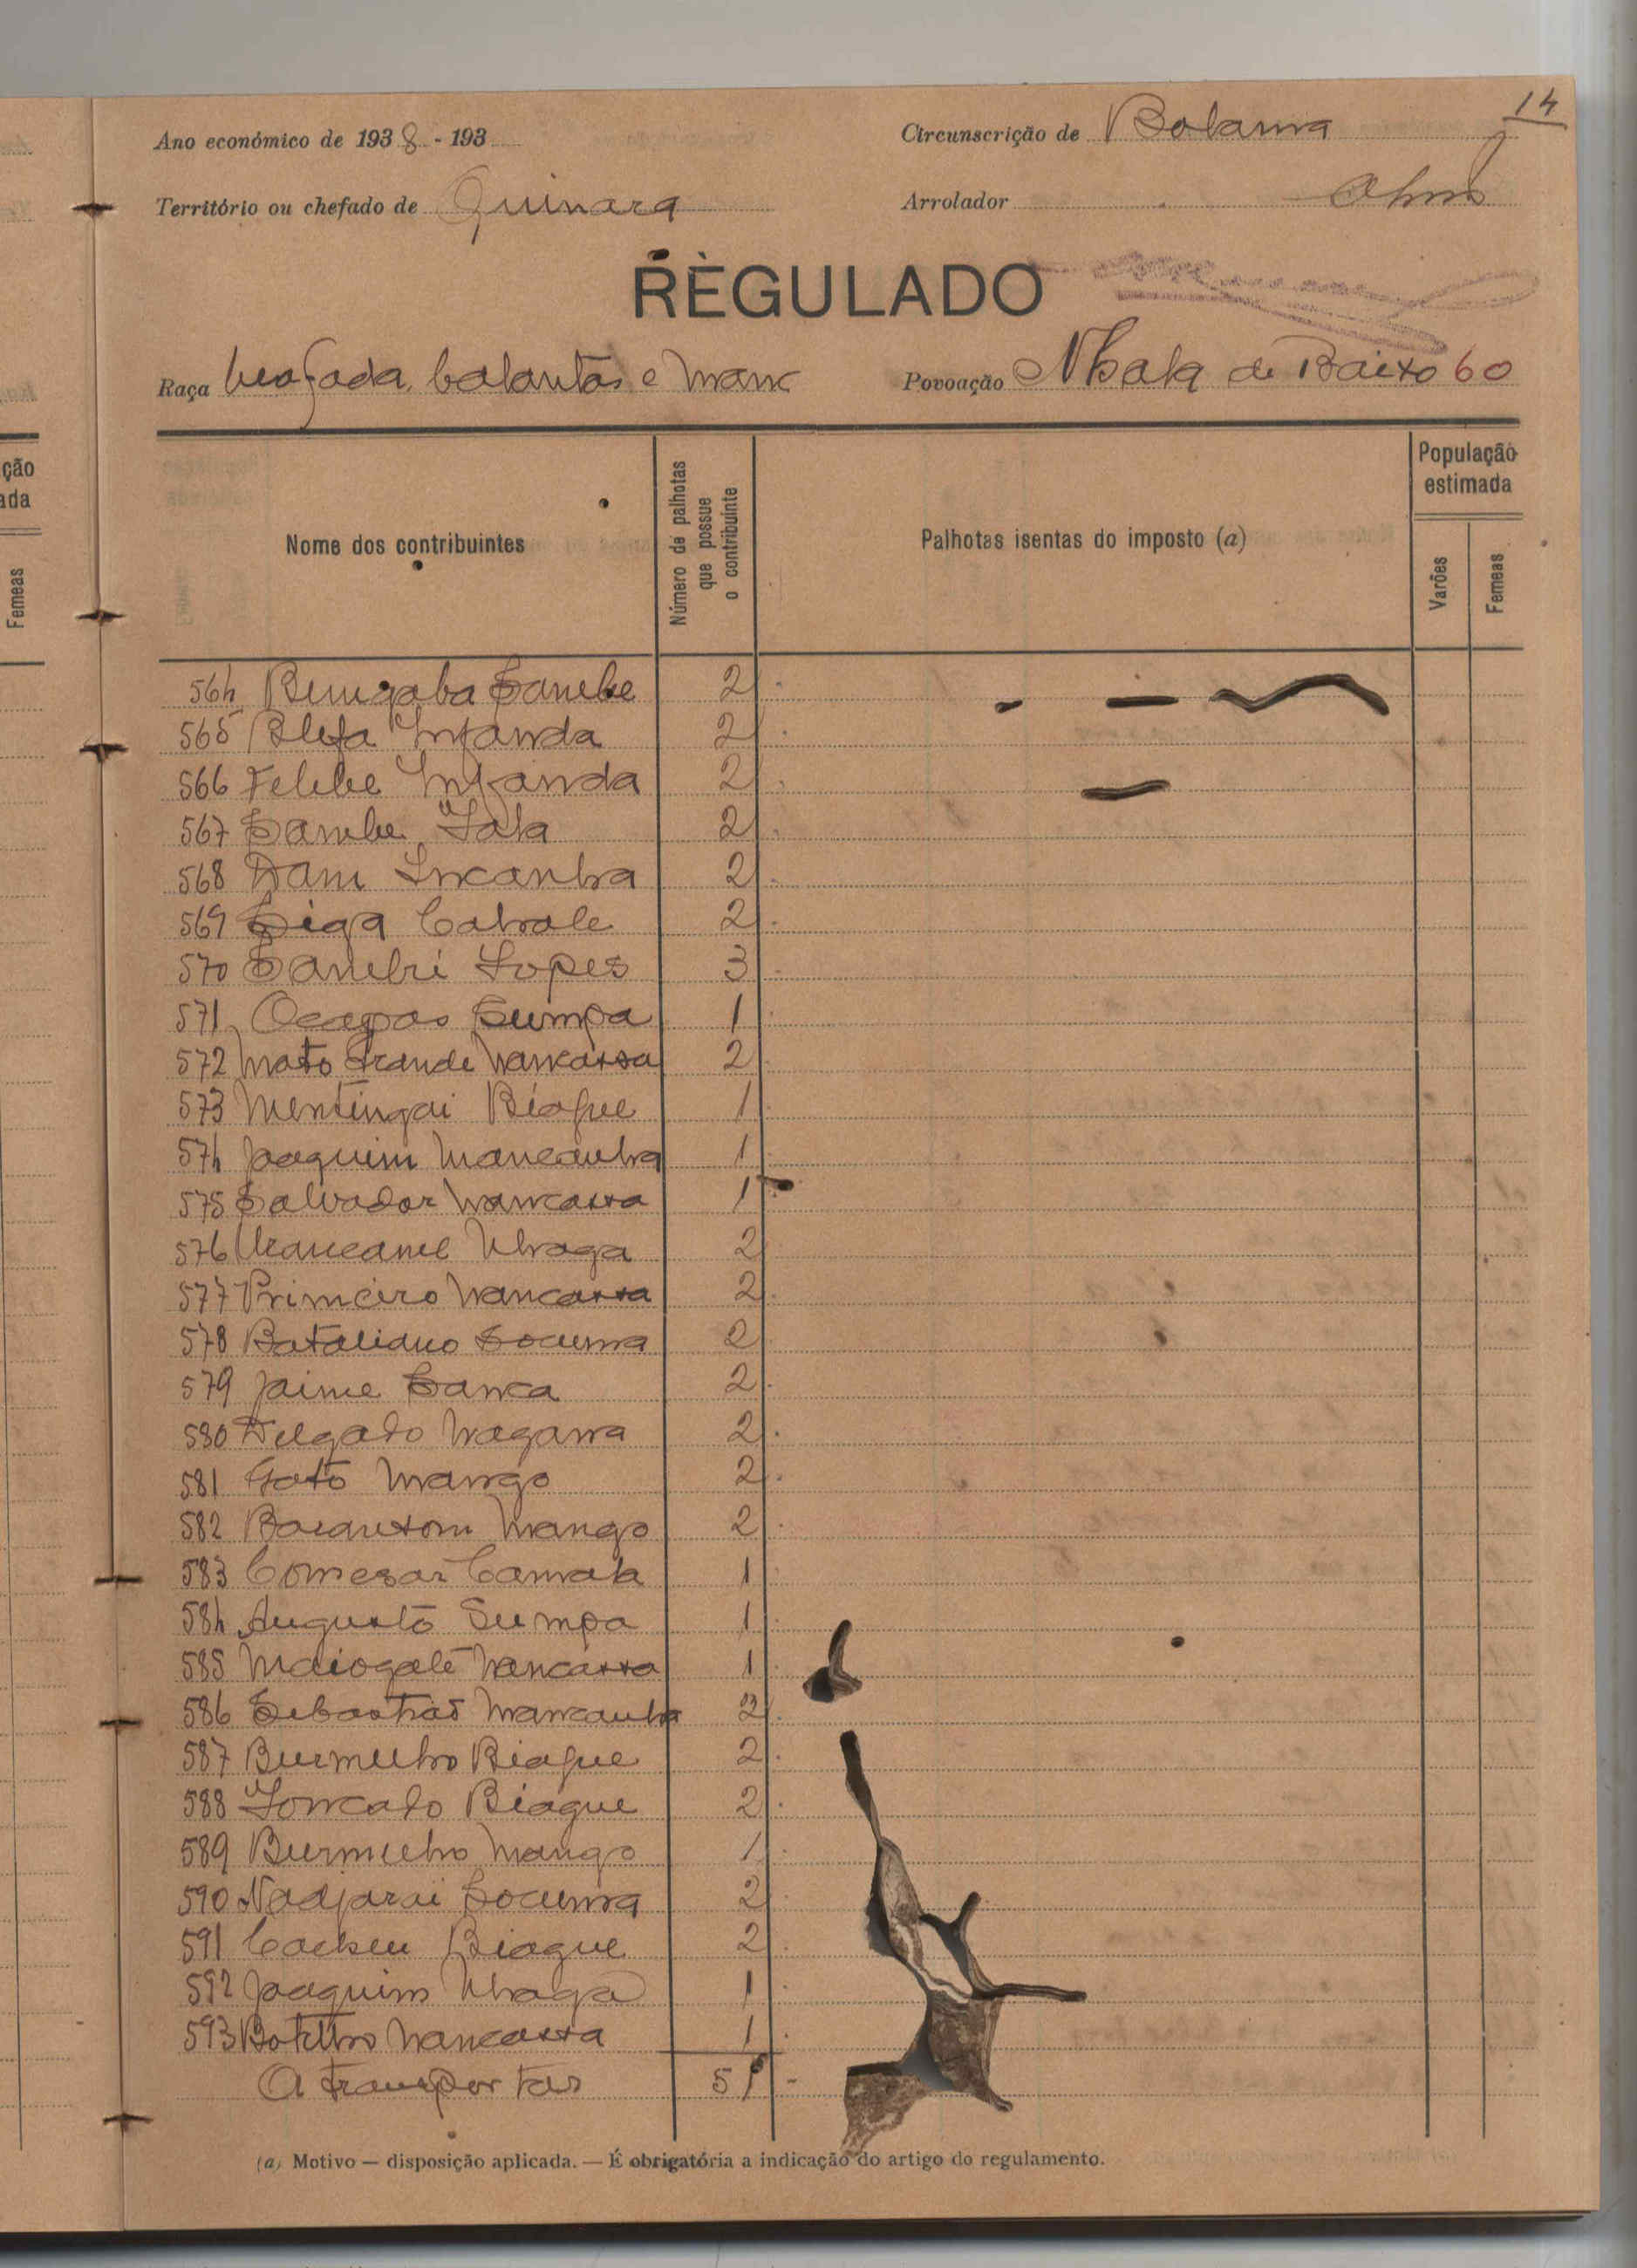 14
Ano económico de 1938 - 193
Circunscrição de Bolama
Território ou chefado de Quinara
Arrolador
REGULADO
Raça beafada, balantas e manc
Povoação Nhala de Baixo 60
Nome dos contribuintes
Número de palhotas que possue o contribuinte
Palhotas isentas do imposto (a)
População estimada
Varões
Femeas
564 Sambe 2
565 Infanda 2
566 Infanda 2
567 Sambe 2
568 Dam Incanha 2
569 Siga Cabrale 2
570 Sambri Lopes 3
571 Sumpa 1
572 Mato Grande Mancassa 2
573 Mentingai Biague 1
574 Joaquim Mancanha 1
575 Salvador Mancassa 1
576 Nhaga 2
577 Primeiro Mancassa 2
578 Socuma 2
579 Jaime Sanca 2
580 Delgado 2
581 Gato Mango 2
582 Mango 2
583 Camala 1
584 Augusto Sumpa 1
585 Maiogalé Mancassa 1
586 Sebastião Mancanha
587 Burmelho Biague 2
588 Biague 2
589 Burmelho Mango 1
590 Nadjarai Socuma 2
591 Cacheu Biague 2
592 Joaquim Nhaga 1
593 Botelho Mancassa 1
A transportar 51
(a) Motivo — disposição aplicada. — É obrigatória a indicação do artigo do regulamento.
ção
ada
Femeas